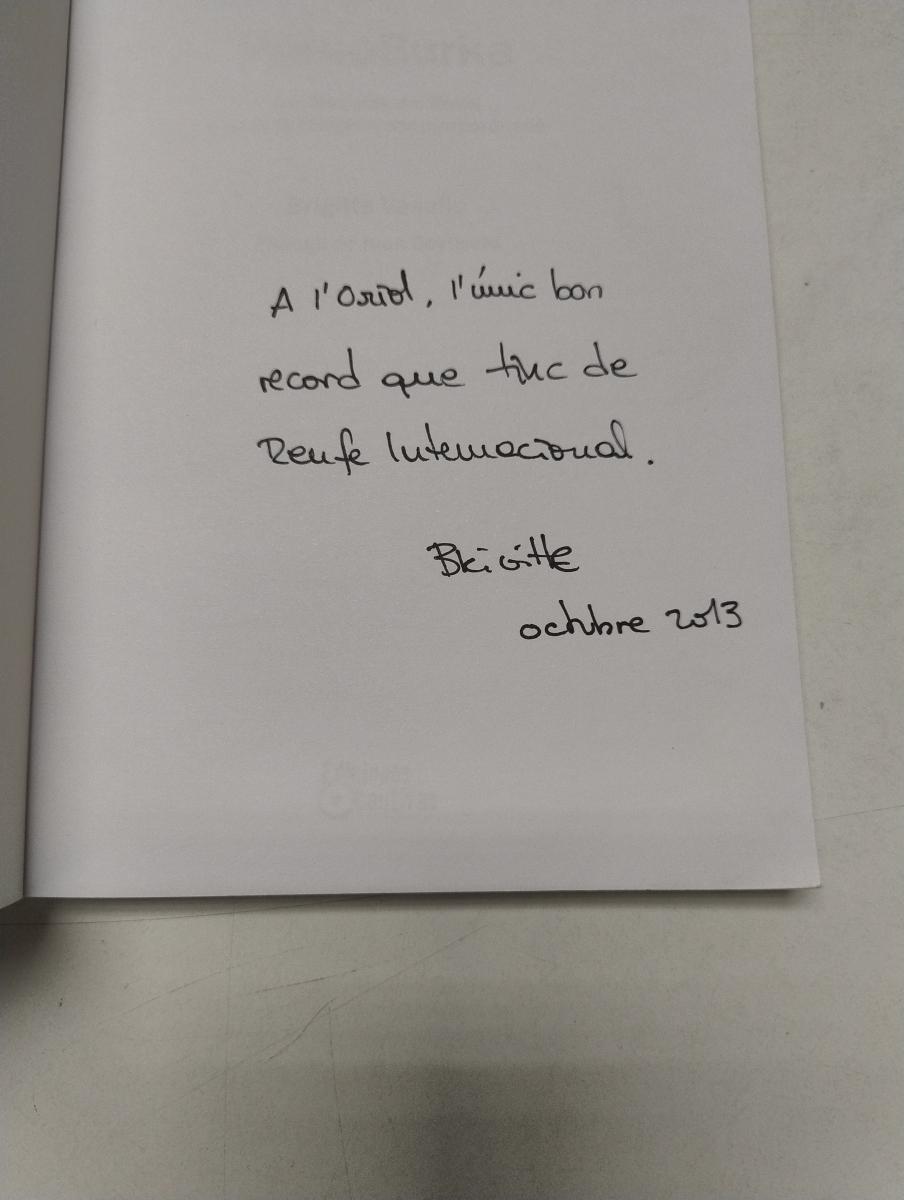 A l'Oriol, l'únic bon
record que tinc de
Renfe Internacional.
Brigitte
octubre 2013